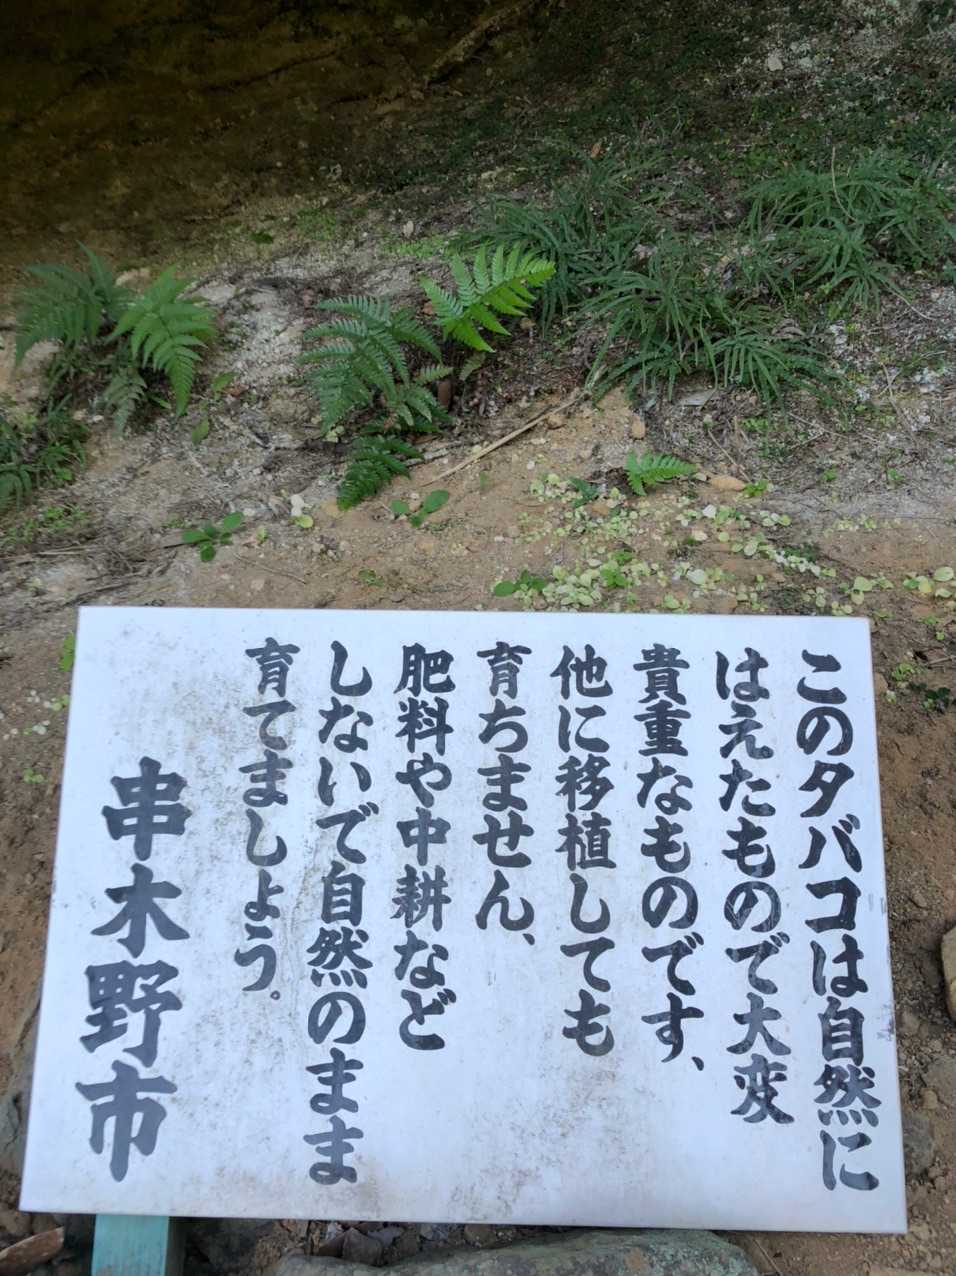 このタバコは自然に
はえたもので大変
貴重なものです、
他に移植しても
育ちません、
肥料や中耕など
しないで自然のまま
育てましょう。
串木野市